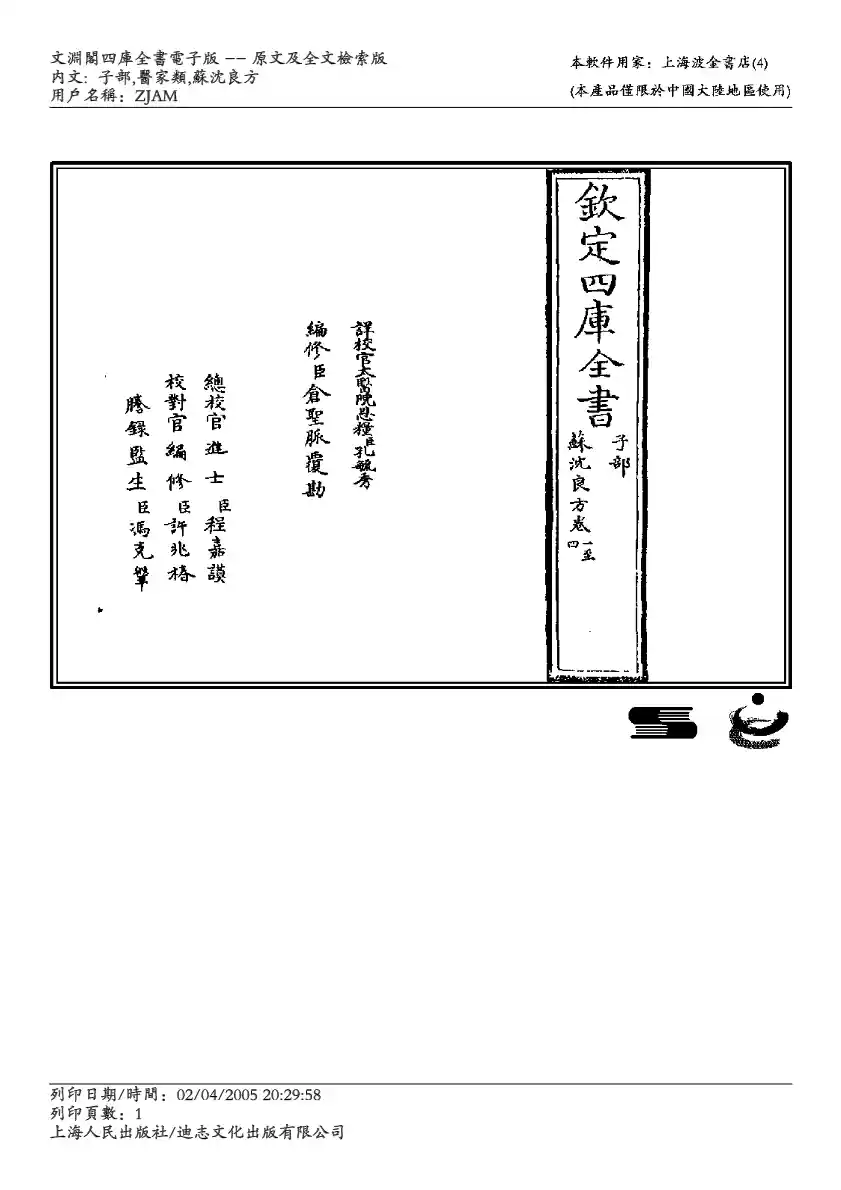 文淵閣四庫全書電子版 -- 原文及全文檢索版
内文: 子部,醫家類,蘇沈良方
用戶名稱: ZJAM
本軟件用家: 上海波金書店(4)
(本產品僅限於中國大陸地區使用)
欽定四庫全書
子部
蘇沈良方卷一至四
詳校官太醫院恩糧臣孔毓秀
編修臣倉聖脈覆勘
總校官進士臣程嘉謨
校對官編修臣許兆椿
謄錄監生臣馮克鞏
列印日期/時間: 02/04/2005 20:29:58
列印頁數: 1
上海人民出版社/迪志文化出版有限公司